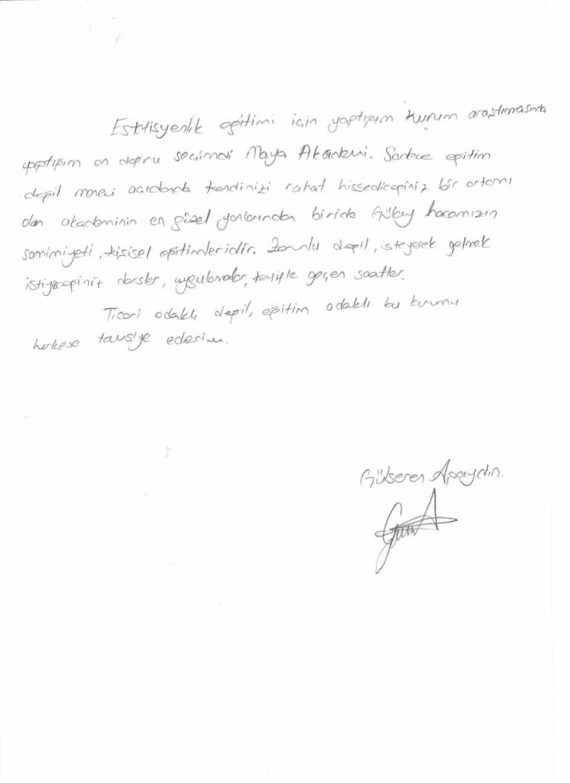 Estetisyenlik eğitimi için yaptığım kurum araştırmasında
yaptığım en doğru seçimdi Maya Akademi. Sadece eğitim
değil manevi açıdanda kendinizi rahat hissedeceğiniz bir ortamı
olan akademinin en güzel yanlarından biride Gülay hocamızın
samimiyeti, kişisel eğitimleridir. Zorunlu değil, isteyerek gelmek
isteyeceğiniz dersler, uygulamalar, keyifle geçen saatler.
Ticari odaklı değil, eğitim odaklı bu kurumu
herkese tavsiye ederim.
Gülseren Apaydın.